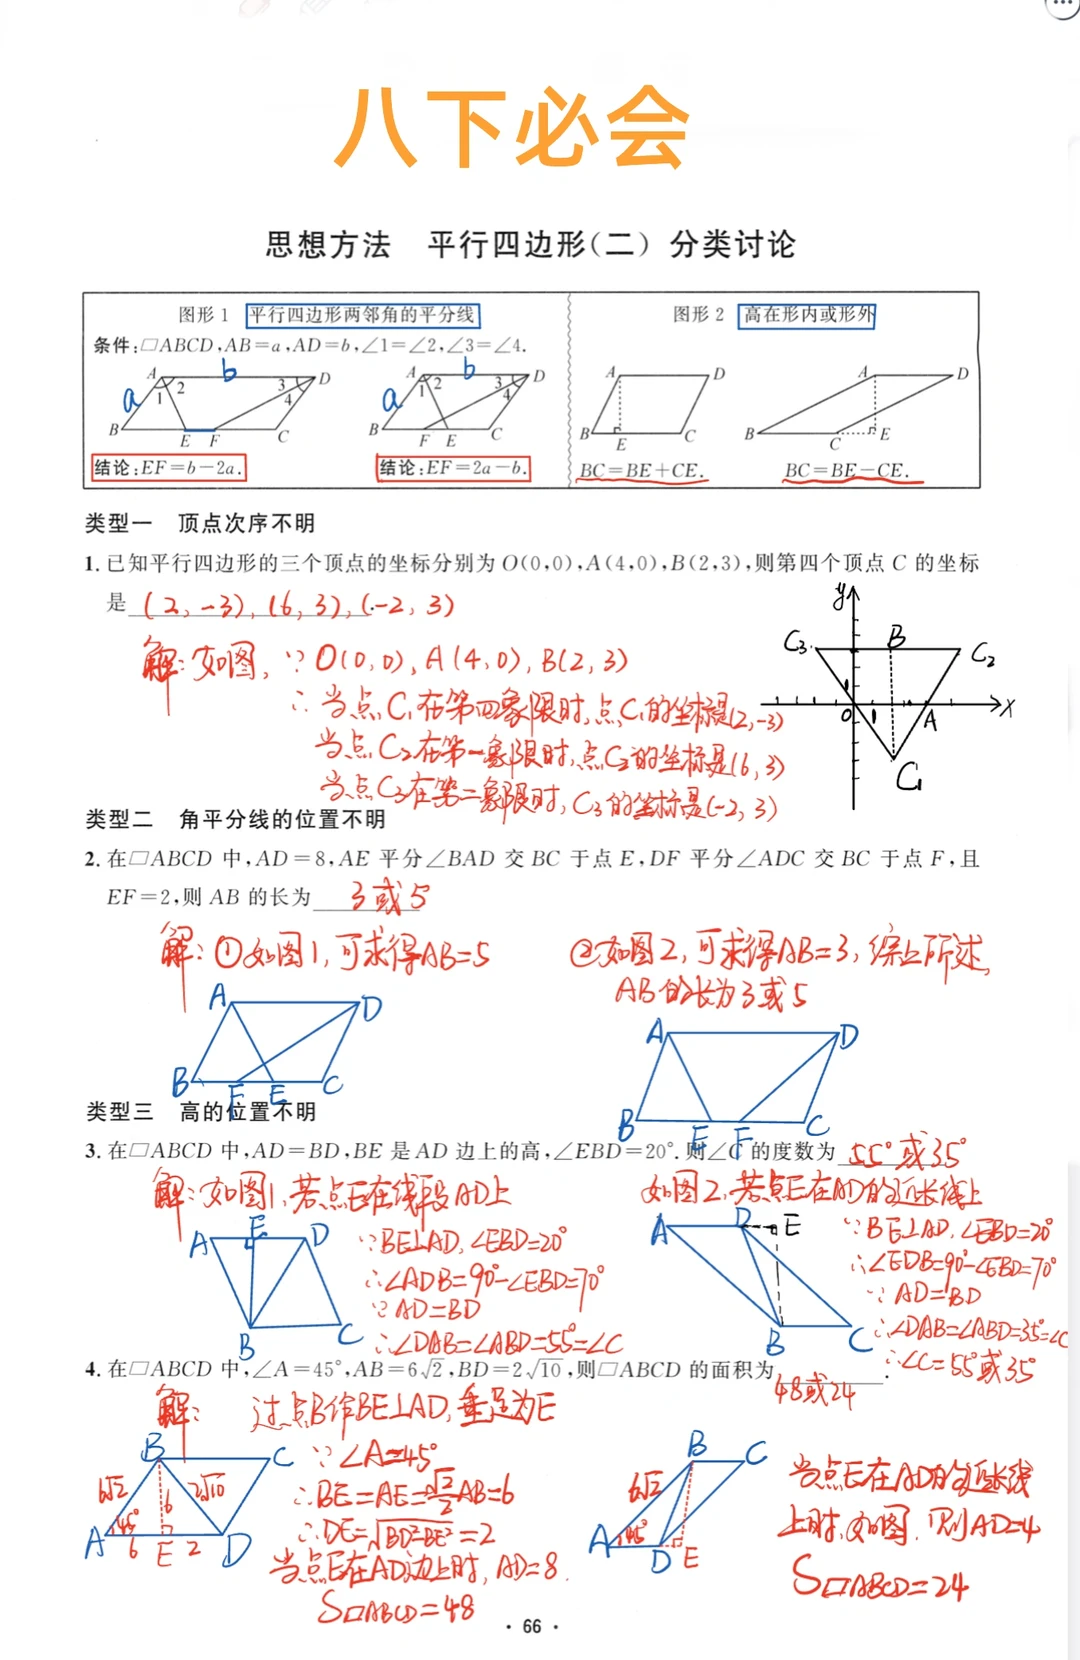 八下必会
思想方法 平行四边形(二) 分类讨论
图形1 平行四边形两邻角的平分线
条件:□ABCD,AB=a,AD=b,∠1=∠2,∠3=∠4.
A 2 b 3 D
a 1 4
B E F C
A 2 b 3 D
a 1 4
B F E C
结论:EF=b-2a.
结论:EF=2a-b.
图形2 高在形内或形外
A D
B E C
A D
B C E
BC=BE+CE.
BC=BE-CE.
类型一 顶点次序不明
1.已知平行四边形的三个顶点的坐标分别为O(0,0),A(4,0),B(2,3),则第四个顶点C的坐标
是(2,-3),(6,3),(-2,3)
解:如图,∵O(0,0),A(4,0),B(2,3)
∴当点C₁在第四象限时,点C₁的坐标是(2,-3)
当点C₂在第一象限时,点C₂的坐标是(6,3)
当点C₃在第二象限时,C₃的坐标是(-2,3)
y
C₃ B C₂
1
O 1 A x
C₁
类型二 角平分线的位置不明
2.在□ABCD中,AD=8,AE平分∠BAD交BC于点E,DF平分∠ADC交BC于点F,且
EF=2,则AB的长为 3或5
解:①如图1,可求得AB=5
②如图2,可求得AB=3,综上所述,
AB的长为3或5
A D
B F E C
A D
B E F C
类型三 高的位置不明
3.在□ABCD中,AD=BD,BE是AD边上的高,∠EBD=20°.则∠C的度数为 55°或35°
解:如图1,若点E在线段AD上
A E D
B C
∵BE⊥AD,∠EBD=20°
∴∠ADB=90°-∠EBD=70°
∵AD=BD
∴∠DAB=∠ABD=55°=∠C
如图2,若点E在AD的延长线上
A D E
B C
∵BE⊥AD,∠EBD=20°
∴∠EDB=90°-∠EBD=70°
∵AD=BD
∴∠DAB=∠ABD=35°=∠C
∴∠C=55°或35°
4.在□ABCD中,∠A=45°,AB=6√2,BD=2√10,则□ABCD的面积为 48或24.
解: 过点B作BE⊥AD,垂足为E
∵∠A=45°
∴BE=AE=√2/2AB=6
∴DE=√BD²-BE²=2
当点E在AD边上时,AD=8.
S□ABCD=48
B C
6√2 6 2√10
45°
A 6 E 2 D
B C
6√2
45°
A D E
当点E在AD的延长线
上时,如图,则AD=4
S□ABCD=24
· 66 ·